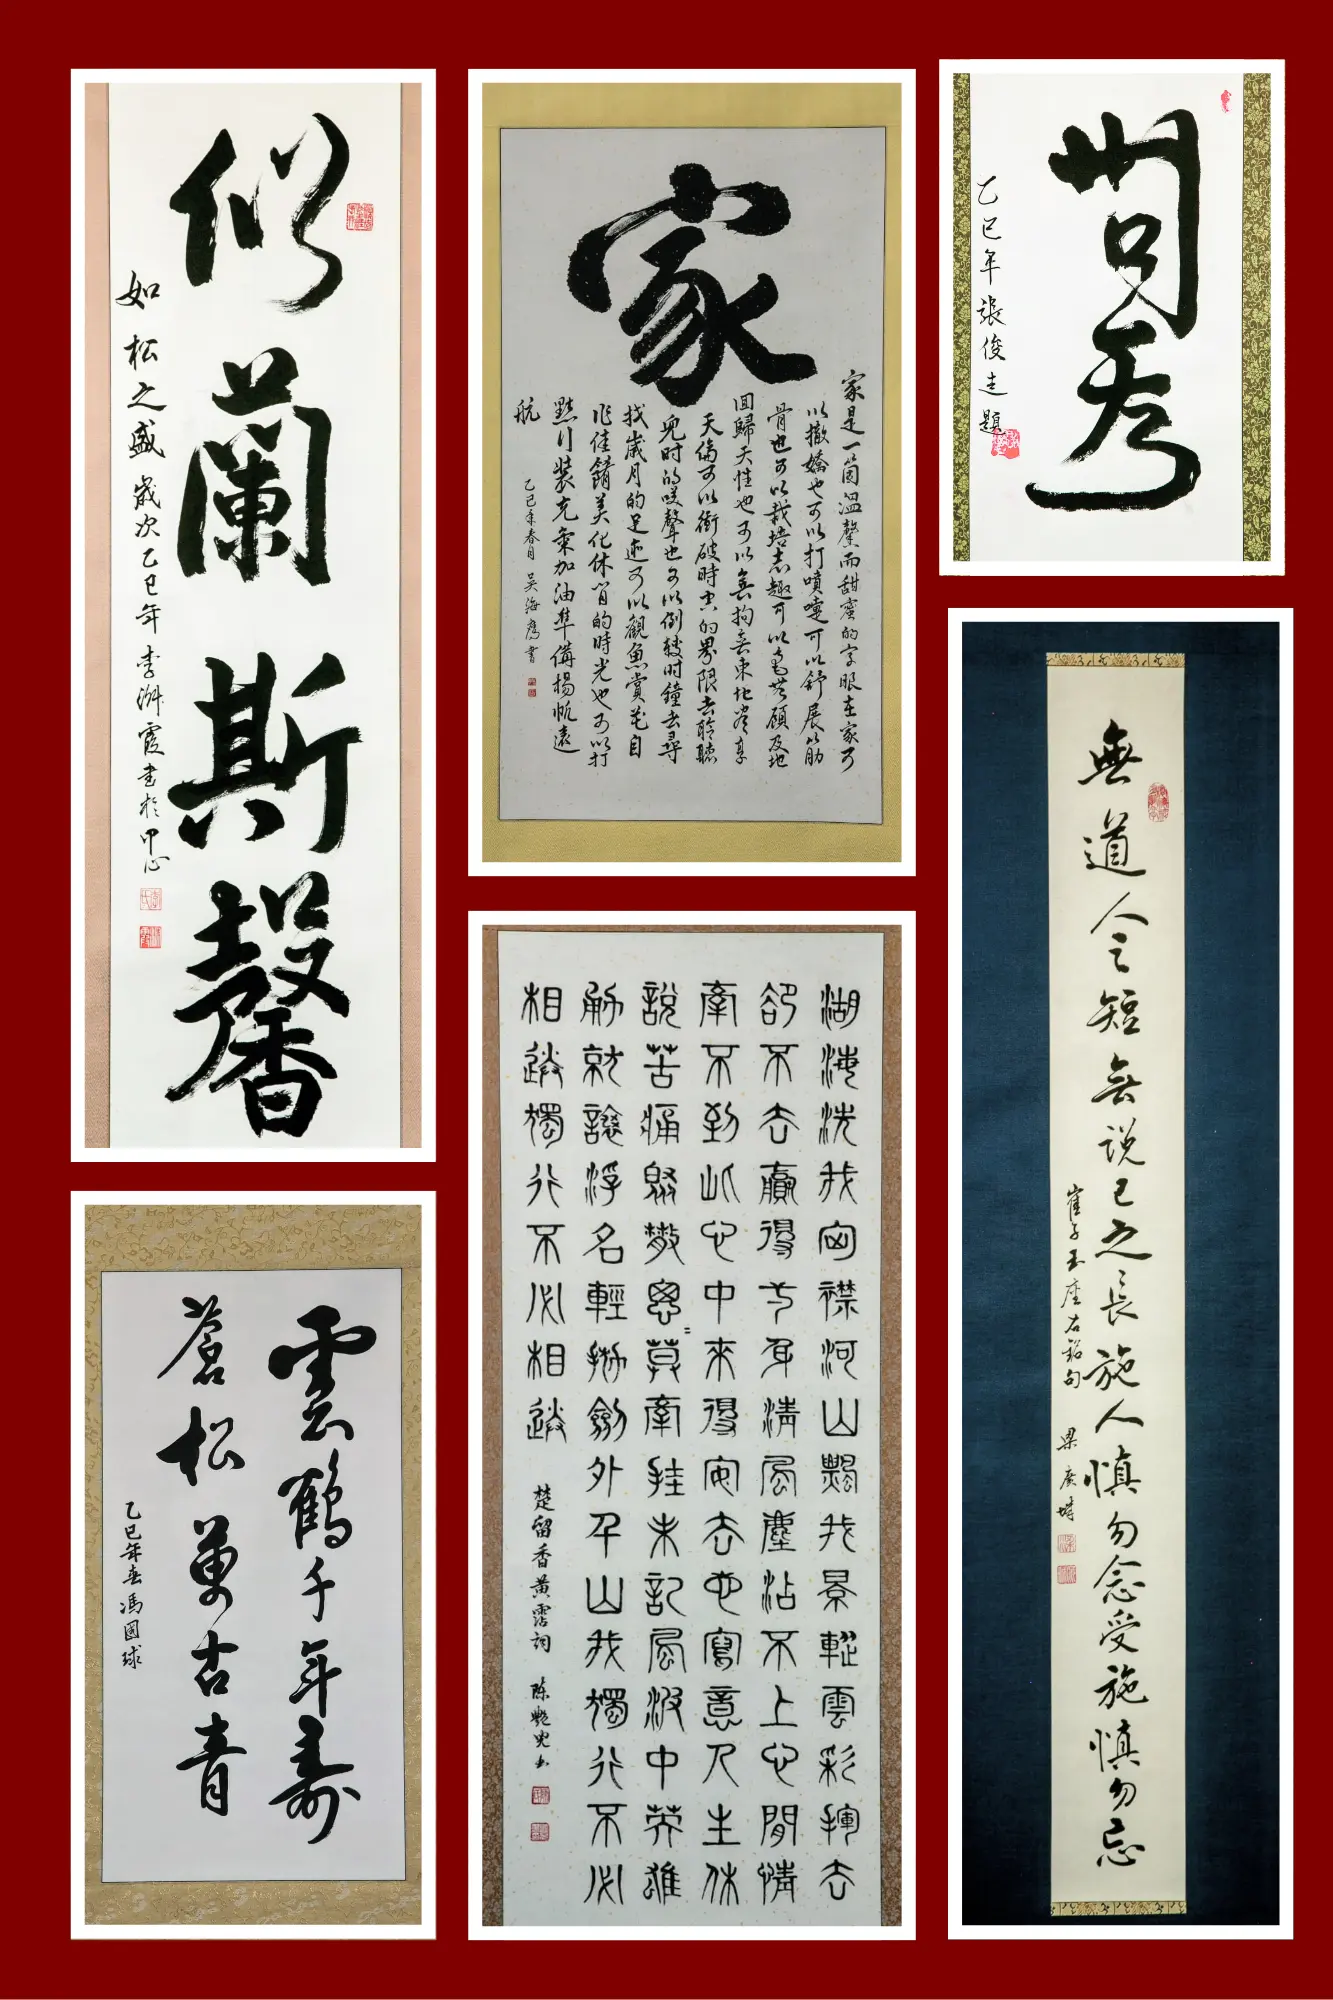 似蘭斯馨
如松之盛 歲次乙巳年 李霞書於中心
家
家是一箇溫馨而甜蜜的字眼在家可
以撒嬌也可以打噴嚏可以舒展筋
骨也可以栽培志趣可以毫無顧及地
回歸天性也可以無拘無束地盡享
天倫可以衝破時空的界限去聆聽
兒時的笑聲也可以倒撥時鐘去尋
找歲月的足迹可以觀魚賞花自
作佳餚美化休閒的時光也可以打
點行裝充氣加油準備揚帆遠
航
乙巳年春月 吳海鷹書
問秀
乙巳年張俊圭題
雲鶴千年壽
蒼松萬古青
乙巳年春馮國球
湖海洗我胸襟河山飄我景蹤雲彩揮去
卻不去贏得一身清風塵沾不上心間情
牽不到此心中來得安去也寫意人生休
說苦痛聚散匆=莫牽挂未記風波中英雄
勇就讓浮名輕拋劍外千山我獨行不必
相送獨行不必相送
楚留香黃霑詞 陳艷兒书
無道人之短無說己之長施人慎勿念受施慎勿忘
崔子玉座右銘句 梁廣